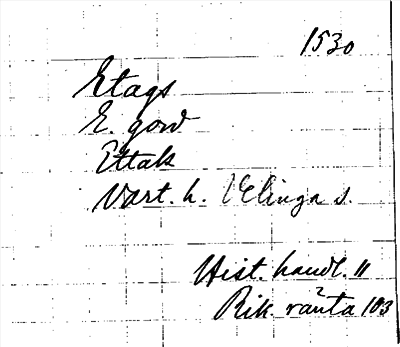 1530
Etags
E. gord
Ettak
Vart. h. Velinga s.
Hist. handl. 11
Rik. ränta 103